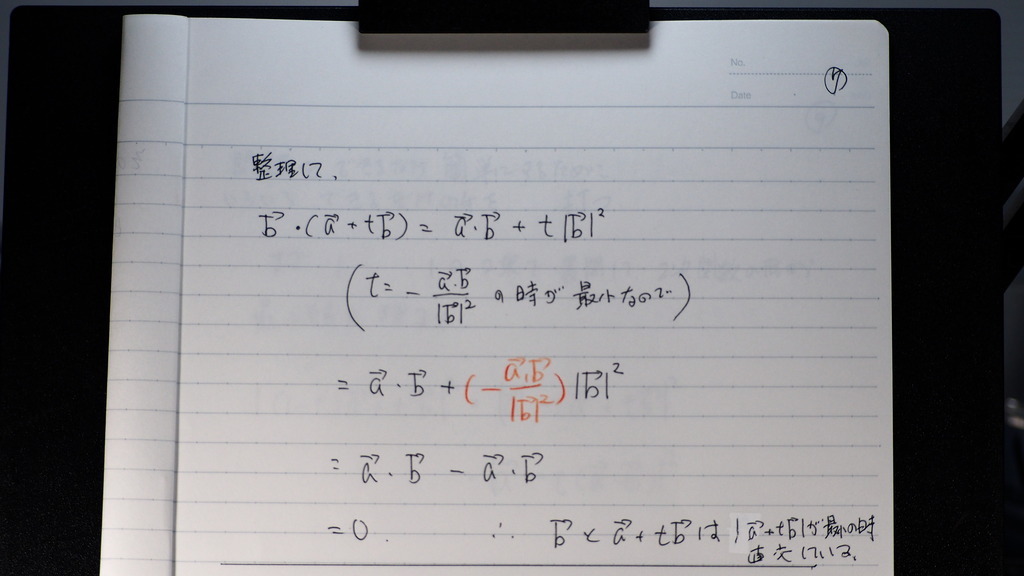 No.
⑦
Date
整理して、
$\vec{b}\cdot(\vec{a}+t\vec{b}) = \vec{a}\cdot\vec{b}+t|\vec{b}|^2$
$\left(t=-\frac{\vec{a}\cdot\vec{b}}{|\vec{b}|^2}\right.$ の時が 最小なので$\left.\right)$
$=\vec{a}\cdot\vec{b}+\left(-\frac{\vec{a}\cdot\vec{b}}{|\vec{b}|^2}\right)|\vec{b}|^2$
$=\vec{a}\cdot\vec{b}-\vec{a}\cdot\vec{b}$
$=0.$ ∴ $\vec{b}$ と $\vec{a}+t\vec{b}$ は $|\vec{a}+t\vec{b}|$が最小の時
直交している。